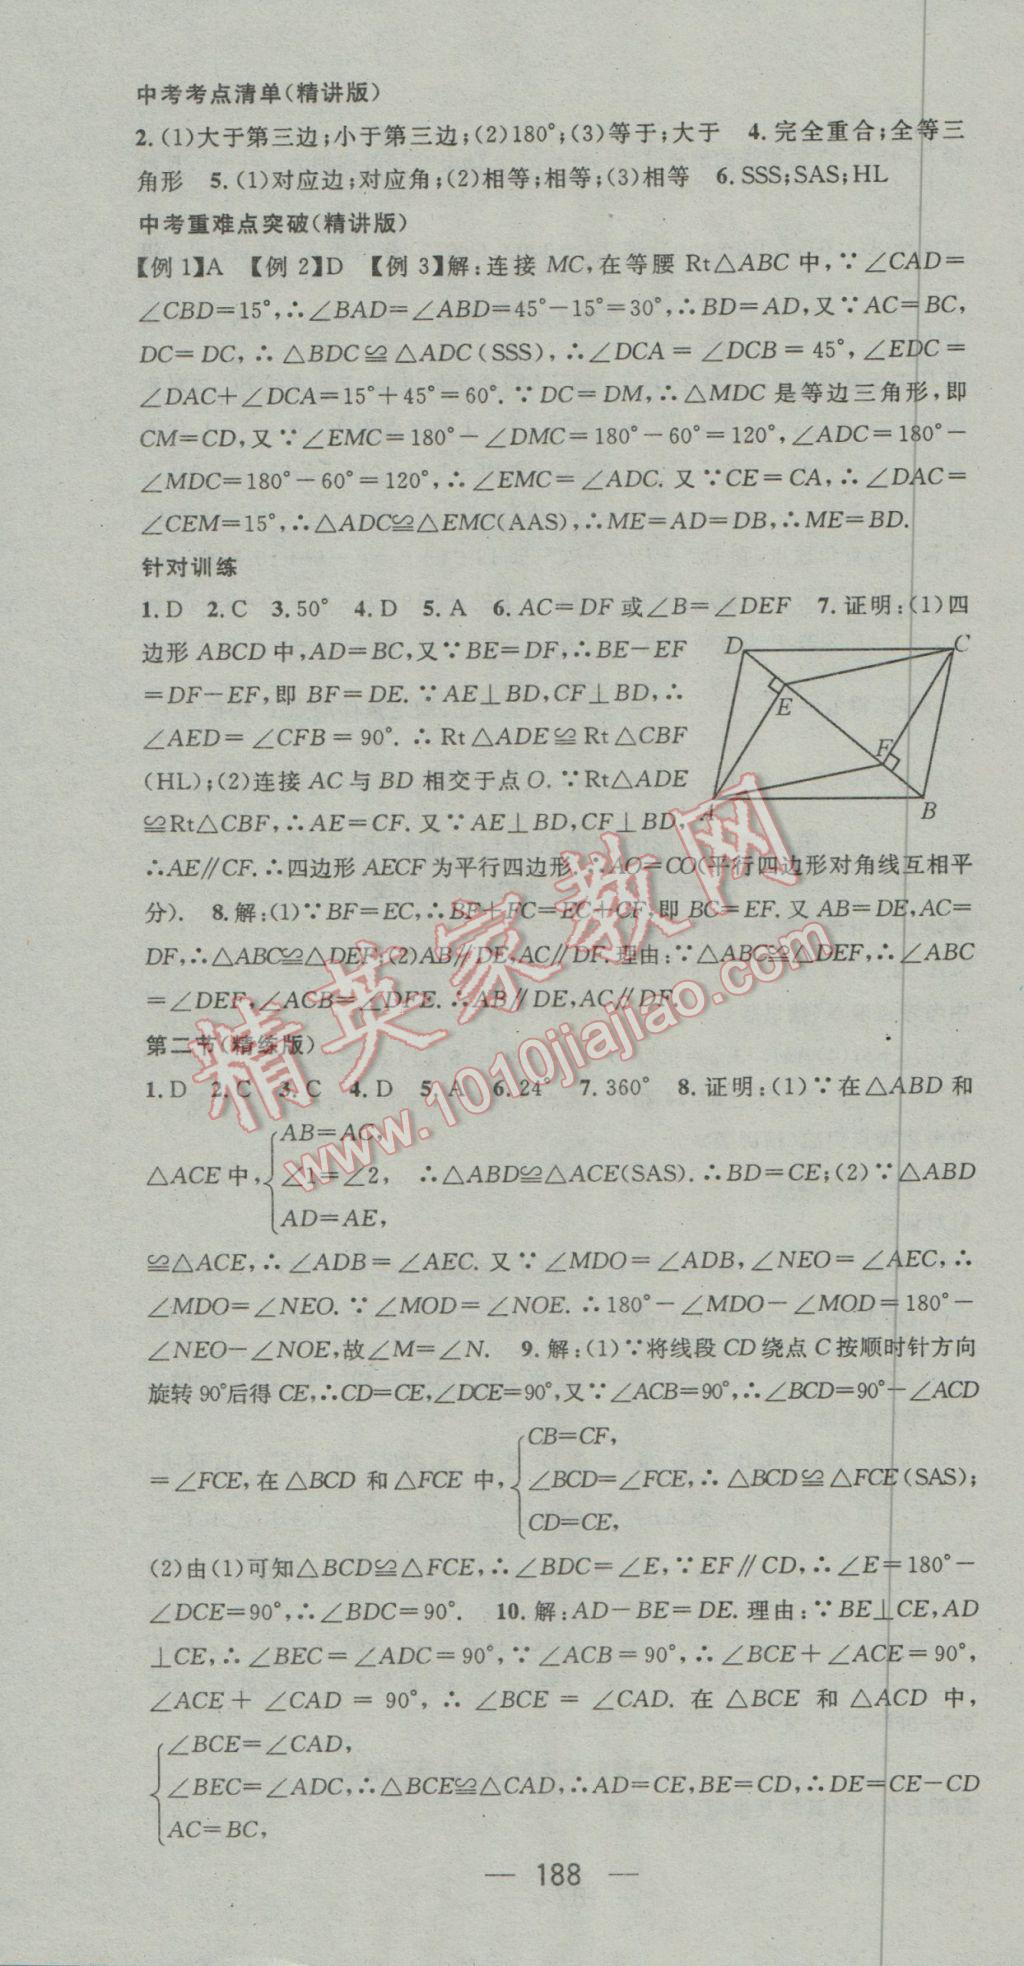 中考考点清单(精讲版)
2.(1)大于第三边;小于第三边;(2)180°;(3)等于;大于 4.完全重合;全等三
角形 5.(1)对应边;对应角;(2)相等;相等;(3)相等 6.SSS;SAS;HL
中考重难点突破(精讲版)
【例1】A 【例2】D 【例3】解:连接MC,在等腰Rt△ABC中,∵∠CAD=
∠CBD=15°,∴∠BAD=∠ABD=45°-15°=30°,∴BD=AD,又∵AC=BC,
DC=DC,∴△BDC≌△ADC(SSS),∴∠DCA=∠DCB=45°,∠EDC=
∠DAC+∠DCA=15°+45°=60°.∵DC=DM,∴△MDC是等边三角形,即
CM=CD,又∵∠EMC=180°-∠DMC=180°-60°=120°,∠ADC=180°-
∠MDC=180°-60°=120°,∴∠EMC=∠ADC.又∵CE=CA,∴∠DAC=
∠CEM=15°,∴△ADC≌△EMC(AAS),∴ME=AD=DB,∴ME=BD.
针对训练
1.D 2.C 3.50° 4.D 5.A 6.AC=DF或∠B=∠DEF 7.证明:(1)四
边形ABCD中,AD=BC,又∵BE=DF,∴BE-EF
=DF-EF,即BF=DE.∵AE⊥BD,CF⊥BD,∴
∠AED=∠CFB=90°.∴Rt△ADE≌Rt△CBF
(HL);(2)连接AC与BD相交于点O.∵Rt△ADE
≌Rt△CBF,∴AE=CF.又∵AE⊥BD,CF⊥BD,
D C
E
F
A B
∴AE∥CF.∴四边形AECF为平行四边形.∴AO=CO(平行四边形对角线互相平
分). 8.解:(1)∵BF=EC,∴BF+FC=EC+CF,即BC=EF.又AB=DE,AC=
DF,∴△ABC≌△DEF;(2)AB∥DE,AC∥DF.理由:∵△ABC≌△DEF,∴∠ABC
=∠DEF,∠ACB=∠DFE.∴AB∥DE,AC∥DF.
第二节(精练版)
1.D 2.C 3.C 4.D 5.A 6.24° 7.360° 8.证明:(1)∵在△ABD和
△ACE中,{AB=AC,
∠1=∠2, ∴△ABD≌△ACE(SAS).∴BD=CE;(2)∵△ABD
AD=AE,
≌△ACE,∴∠ADB=∠AEC.又∵∠MDO=∠ADB,∠NEO=∠AEC,∴
∠MDO=∠NEO.∵∠MOD=∠NOE.∴180°-∠MDO-∠MOD=180°-
∠NEO-∠NOE,故∠M=∠N. 9.解:(1)∵将线段CD绕点C按顺时针方向
旋转90°后得CE,∴CD=CE,∠DCE=90°,又∵∠ACB=90°,∴∠BCD=90°-∠ACD
=∠FCE,在△BCD和△FCE中,{CB=CF,
∠BCD=∠FCE,∴△BCD≌△FCE(SAS);
CD=CE,
(2)由(1)可知△BCD≌△FCE,∴∠BDC=∠E,∵EF∥CD,∴∠E=180°-
∠DCE=90°,∴∠BDC=90°. 10.解:AD-BE=DE.理由:∵BE⊥CE,AD
⊥CE,∴∠BEC=∠ADC=90°,∵∠ACB=90°,∴∠BCE+∠ACE=90°,
∠ACE+∠CAD=90°,∴∠BCE=∠CAD.在△BCE和△ACD中,
{∠BCE=∠CAD,
∠BEC=∠ADC,∴△BCE≌△CAD,∴AD=CE,BE=CD,∴DE=CE-CD
AC=BC,
— 188 —
精英家教网
www.1010jiajiao.com